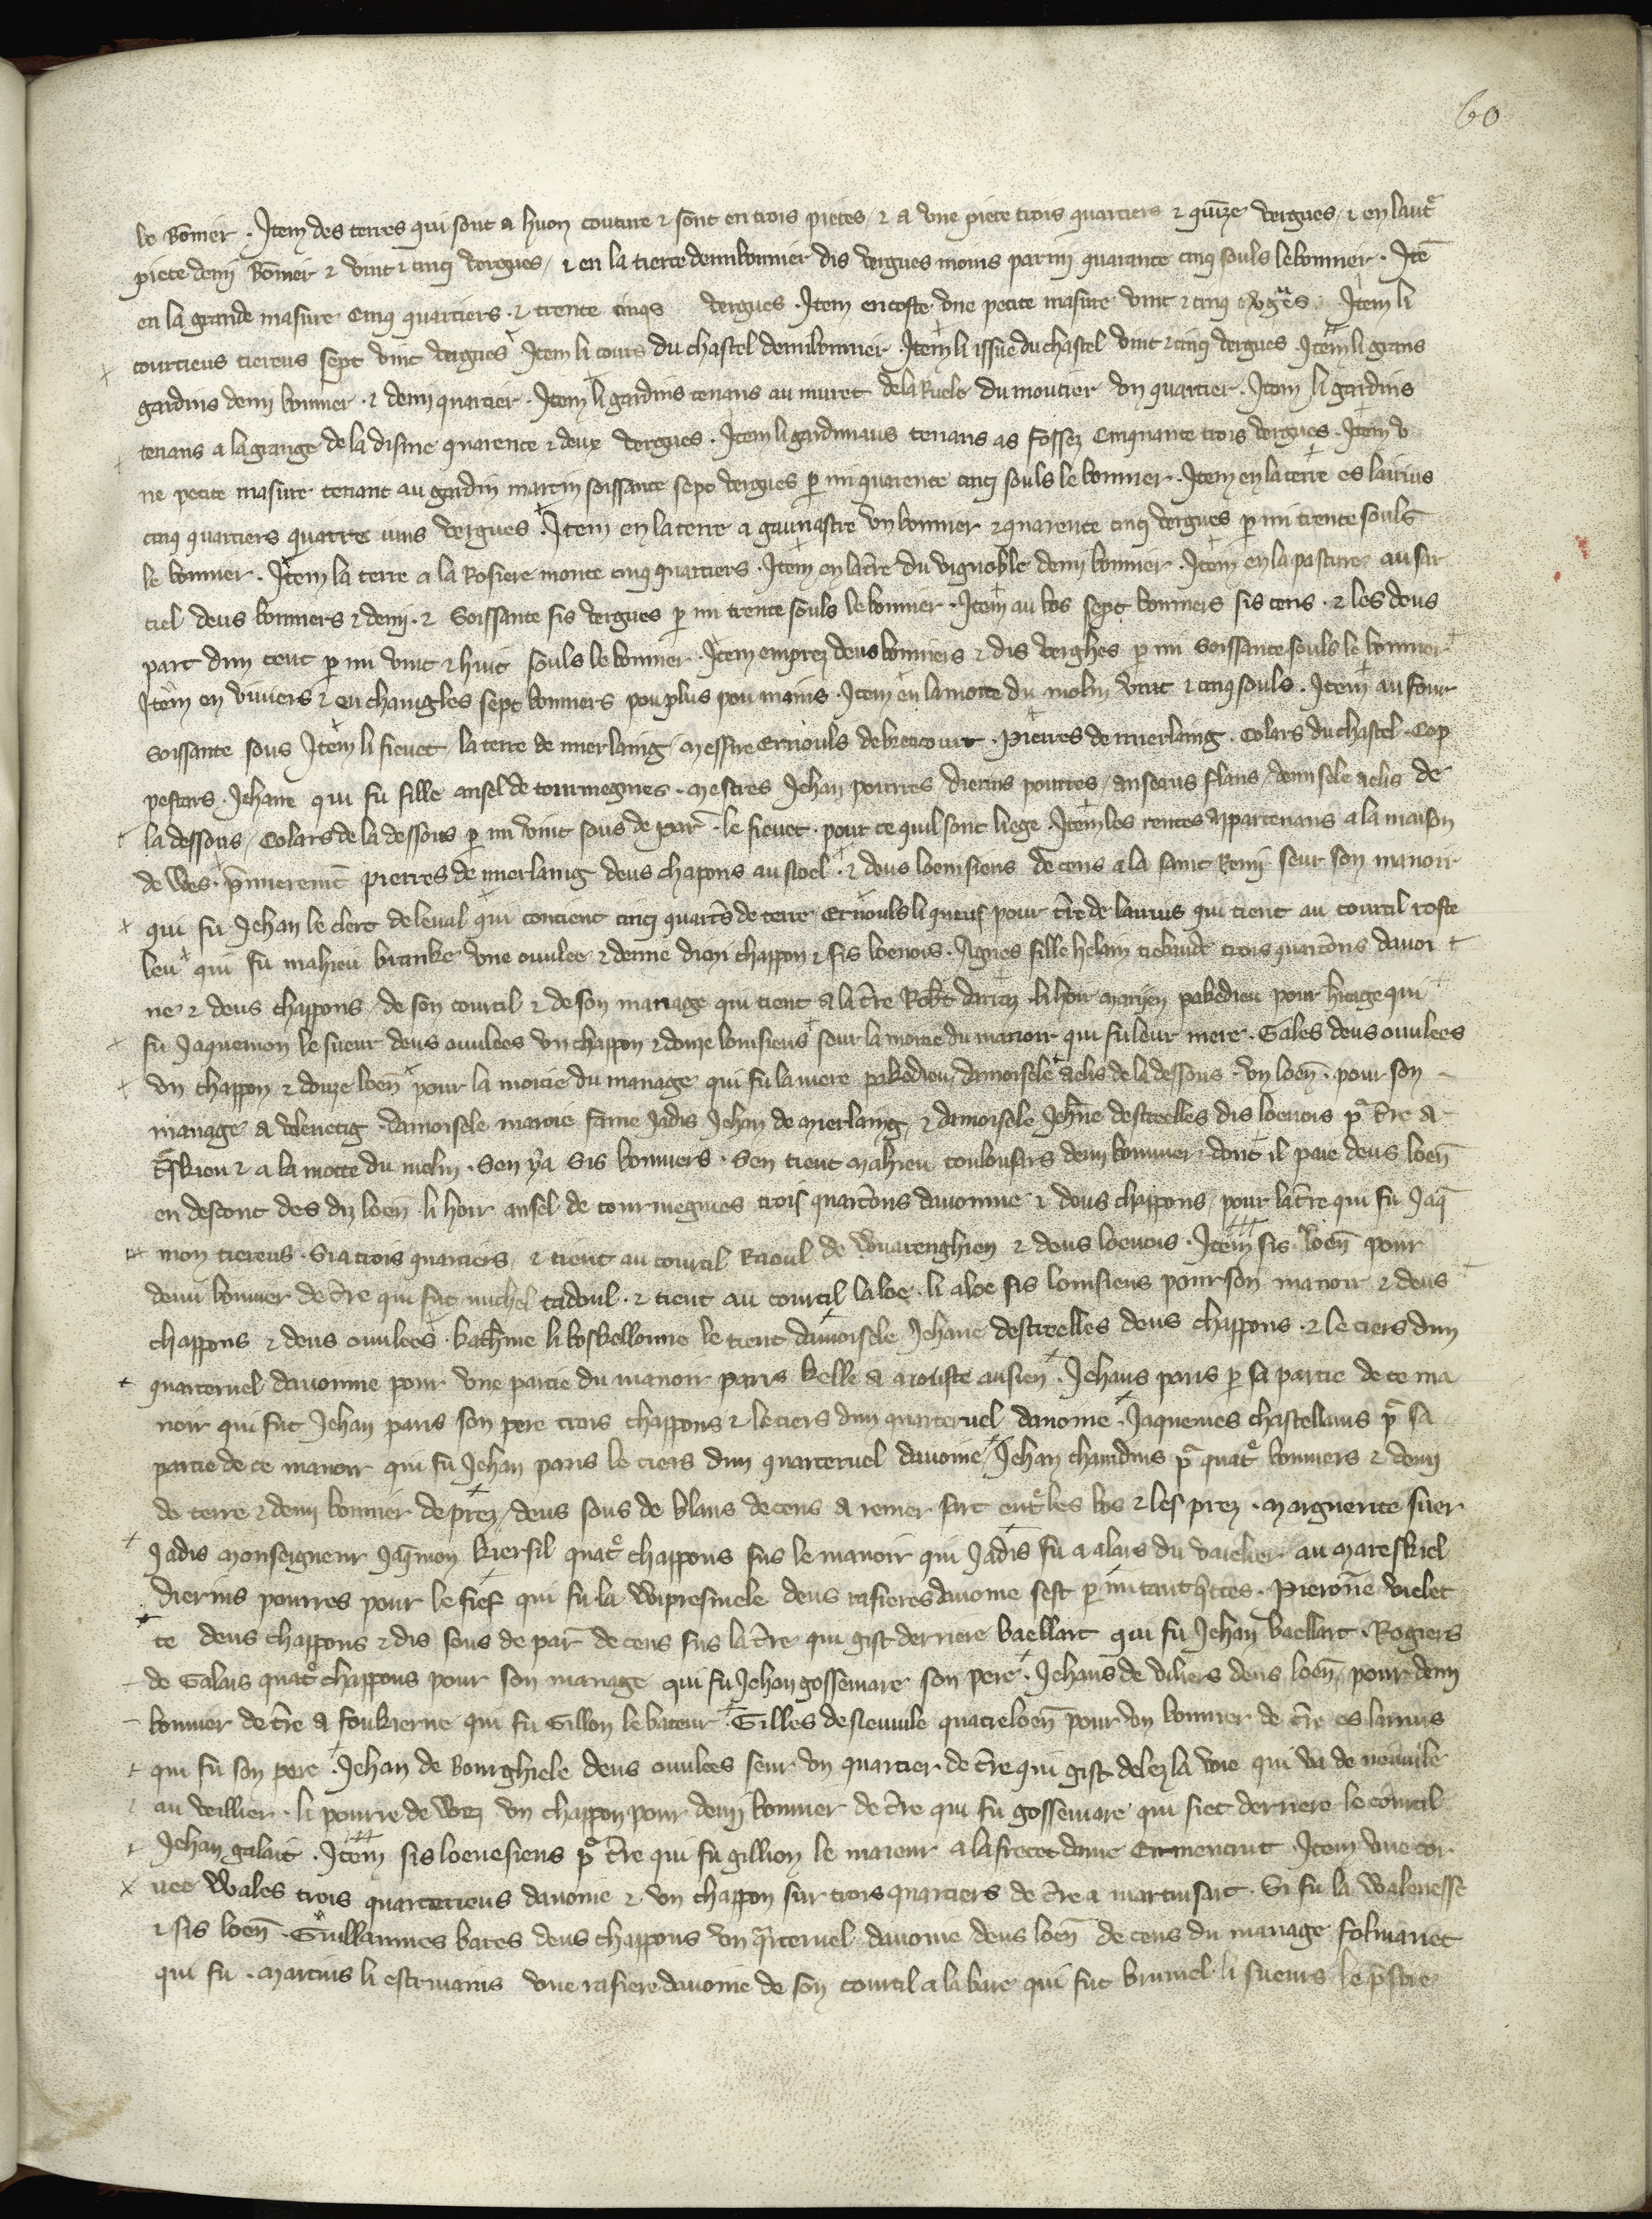 60
le bōnier . Item des terres qui sont a huon couture ⁊ sont en trois pieces / ⁊ a vne piece trois quartiers ⁊ quīze vergues / ⁊ en lautͤ
piece demi bōnier ⁊ vint ⁊ cinq vergues / ⁊ en la tierce demi bonnier dis vergues moins parmi quarante cinq souls le bonnier . Itē
en la grande masure cinq quartiers . ⁊ trente cinqs vergues . Item encoste vne petite masure vint ⁊ cinq vergues . Item li
courtieus tiereus sept vint vergues Item li cours du chastel demi bonnier . Item li issue du chastel vint ⁊ cinq vergues Item li grans
gardins demi bonnier . ⁊ demi quartier . Item li gardins tenans au muret de la Ruele du moutier vn quartier . Item li gardins
tenans a la grange de la disme quarente ⁊ deux vergues . Item li gardinaus tenans as fossez Cinquante trois vergues . Item v
ne petite masure tenant au gardin martin soissante sept vergues ꝑ mi quarente cinq souls le bonnier . Item en la terre es lairius
cinq quartiers quatre vins vergues . Item en la terre a gaunastre vn bonnier ⁊ quarente cinq vergues ꝑ mi trente souls
le bonnier . Item la terre a la Rosiere monte cinq quartiers . Item en la t̄re du vignoble demi bonnier . Item en la pasture au sar
tiel deus bonniers ⁊ demi . ⁊ Soissante sis vergues ꝑ mi trente souls le bonnier . Item au bos sept bonniers sis cens . ⁊ les deus
part dun cent ꝑ mi vint ⁊ huit souls le bonnier . Item en prez deus bonniers ⁊ dis verghes ꝑ mi soissante souls le bonnier
Item en viuiers ⁊ en chaingles sept bonniers pou plus pou mains . Item en la motte du molin vint ⁊ cinq souls . Item au four
soissante sous Item li fieuet la terre de merlaing / Messire Ernouls de becourt . Pierres de merlaing . Colars du chastel . Cop
pestars . Jehane qui fu fille ansel de tourmegnies . Mestres Jehan pourres / dierins pourres / anseaus flans / demisele aelis de
la dessous / Colars de la dessous ꝑ mi vint sous de par̄ . le fieuet . pour ce quil sont liege . Item les rentes apartenans a la maison
de wes . p̄mierem̄t pierres de merlaing deus chapons au noel . ⁊ deus loenisiens de cens a la saint Remi seur son manoir
qui fu Jehan le clerc de leual qui contient cinq quart̄s de terre Ernouls li queus pour t̄re de lairius qui tient au courtil coste
leu qui fu mahieu branke vne ouulee ⁊ demie demi chappon ⁊ sis loenois . Agnes fille helain tiebaude trois quartōns dauoi
ne ⁊ deus chappons / de son courtil ⁊ de son manage qui tient a la t̄re Rob̄t darraz . li hoir marien pakedieu pour hitage qui
fu Jaquemon le sueur deus ouulees vn chappon ⁊ douze loenisiens seur la moitie du manoir qui fu leur mere . Gales deus ouulees
vn chappon ⁊ douze loen̄ pour la moitie du manage qui fu la mere pakedieu / damoisele aelis de la dessous . vn loen̄ . pour son
manage a velenetig . damoisele marie fame Jadis Jehan de merlaing / ⁊ damoisele Jeh̄ne destreelles dis loenois pᵃ t̄re a
ēskieu ⁊ a la motte du molin . Sen y a Sis bonniers . Sen tient Mahieu toulousars demi bonnier . dont il paie deus loen̄
en descont des diz loen̄ . li hoir ansel de tourmegnies trois quartōns dauoinne ⁊ deus chappons / pour la t̄re qui fu Jaq̄
mon tiereus . Si a trois quartiers / ⁊ tient au courtil Raoul de wuarenghien ⁊ deus loenois . Item sis loen̄ pour
demi bonnier de t̄re qui fut michel cadoul . ⁊ tient au courtil laloe . li aloe sis loenisiens pour son manoir ⁊ deus
chappons ⁊ deus ouulees . kath̄ine li boskellonne le tient damoisele Jehane destreelles deus chappons . ⁊ le tiers dun
quarteruel dauoinne pour vne partie du manoir paris kelle a ajouste au sien . Jehans paris ꝑ sa partie de ce ma
noir qui fut Jehan paris son pere trois chappons ⁊ le tiers dun quarteruel dauoine . Jaquemes chastellains pᵃ sa
partie de ce manoir qui fu Jehan paris le tiers dun quarteruel dauoine / Jehan chandins pᵃ quatͤ bonniers ⁊ demi
de terre ⁊ demi bonnier de prez / deus sous de blans de cens a remer sart entͤ les bos ⁊ les prez . Marguerite suer
Jadis Monseigneur Jaq̄mon kiersil quatͤ chappons sus le manoir qui Jadis fu a alars du vaielier au mareskiel
dierins pourres pour le fief qui fu la wipresinele deus rasieres dauoine sest ꝑ mi tant q̄ttes . Pieron̄e violet
te deus chappons ⁊ dis sous de par̄ de cens sus la t̄re qui gist derriere baellart qui fu Jehan baellart . Rogiers
de Galais quatͤ chappons pour son manage qui fu Jehan gossemare son pere . Jehans de viliers deus loen̄ / pour demi
bonnier de t̄re a foukierue qui fu Gillon le bateur . Gilles de neuuile quatre loen̄ pour vn bonnier de t̄re es lairius
qui fu son pere . Jehan de bourghiele deus ouulees seur vn quartier de t̄re qui gist delez la voie qui va de neuuile
au veillier . li pourre de wez vn chappon pour demi bonnier de t̄re qui fu gossemare qui siet derriere le courtil
Jehan galait . Item sis loenesiens pᵒ t̄re qui fu gillion le maieur a la frete dame Ermentrut . Item vne cor
uee wales trois quarteriens dauoine ⁊ vn chappon sur trois quartiers de t̄re a martinsart . Si fu la walenesse
⁊ sis loen̄ . Guillaumes bares deus chappons vn q̄rteruel dauoine / deus loen̄ de cens du manage folmariet
qui fu . Martins li escriuains vne rasiere dauoine de son courtil a la bare qui fut brunel li sueurs le p̄stre